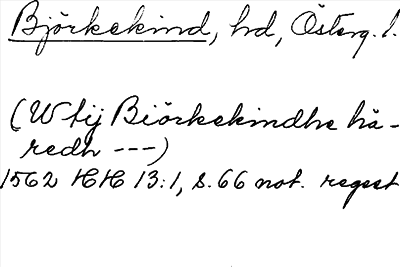 Björkekind, hd, Österg. l.
(W tij Biörkekindhe hä-
redh ---)
1562 HH 13:1, s. 66 not. regest